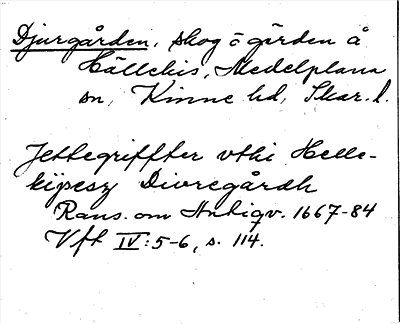 Djurgården, skog o gården å
Hällekis, Medelplana
sn, Kinne hd, Skar. l.
Jettegriffter vthi Helle-
kijsesz Diuregårdh
Rans. om Antiqv. 1667-84
Vft IV:5-6, s. 114.